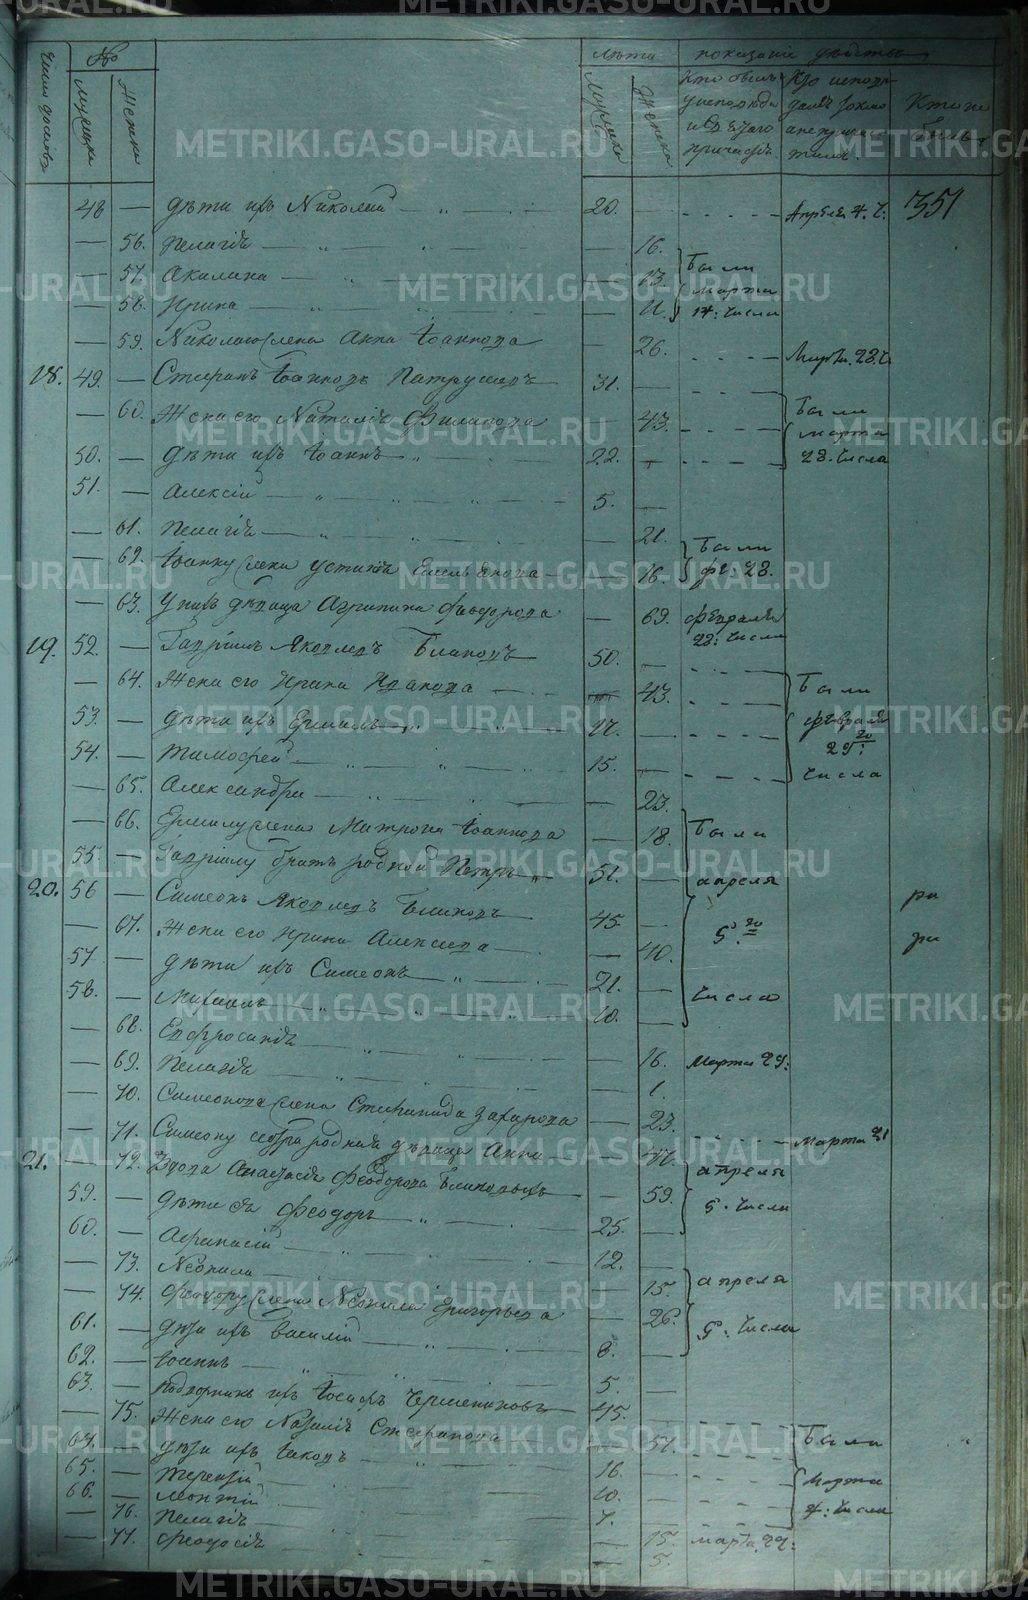 METRIKI.GASO-URAL.RU
число домовъ № лѣта показаніе дѣйства
мужска женска мужска женска
Кто былъ у исповѣди и Св. Таго причастія
Кто исповѣдалъ токмо а не причастилъ
Кто не былъ
48 — дѣти ихъ Николай — 20. — Апрѣля 4. ч. 351
— 56. Пелагія — 16.
— 57. Акилина — 13. Были марта
— 58. Ирина — 11. числа
— 59. Николаю жена Анна Іоаннова — 26. Марта 23. ч.
18. 49. — Стефанъ Іоанновъ 31. —
— 60. Жена его Наталія Филипова 43. Были марта
50. — дѣти ихъ Іоаннъ 22. — 23. числа
51. — Алексій — 5. —
— 61. Пелагія — 21. Были
— 62. Іоанну жена Устинія Емельянова — 16. фе: 23.
— 63. У нихъ дѣвица Агрипина Феодорова — 69. февраля 23: числа
19. 52. — Гавріилъ Яковлевъ Блиновъ 50. —
— 64. Жена его Ирина Иванова — 43. Были
53. — дѣти ихъ Ермилъ 17. — февраля
54. — Тимофей — 15. — 25го числа
— 65. Александра — 23.
— 66. Ермилу жена Матрона Іоаннова — 18. Были
55. — Гавріилу братъ родной Петръ 51. — апреля
20. 56 — Симеонъ Яковлевъ Блиновъ 45. — 5го
— 67. Жена его Ирина Алексѣева — 40.
57. — дѣти ихъ Симеонъ 21. —
58. — Михаилъ 10. — числа
— 68. Евфросинія — 16. Марта 29:
— 69. Пелагія — 1.
— 70. Симеонова жена Стефанида Захарова — 23. марта 31
— 71. Симеону сестра родная дѣвица Анна — 47. апреля
21. — 72. Вдова Анастасія Феодорова Блиновыхъ — 59. 5. числа
59. — дѣти ея Феодоръ 25. —
60. — Афанасій — 12. —
— 73. Неонила — 15. апреля
— 74. Феодору жена Неонила Григорьева — 26. 5. числа
61. — дѣти ихъ Василій 8. —
62. — Іоаннъ — 5. —
63. — Подворникъ ихъ Іосифъ 45.
— 75. Жена его Наталія Стефанова — 51. Были
64. — дѣти ихъ Іаковъ 16. —
65. — Терентій 10. — марта
66. — Леонтій 7. — числа
— 76. Пелагія — 15. марта 29:
— 77. Феодосія — 5.